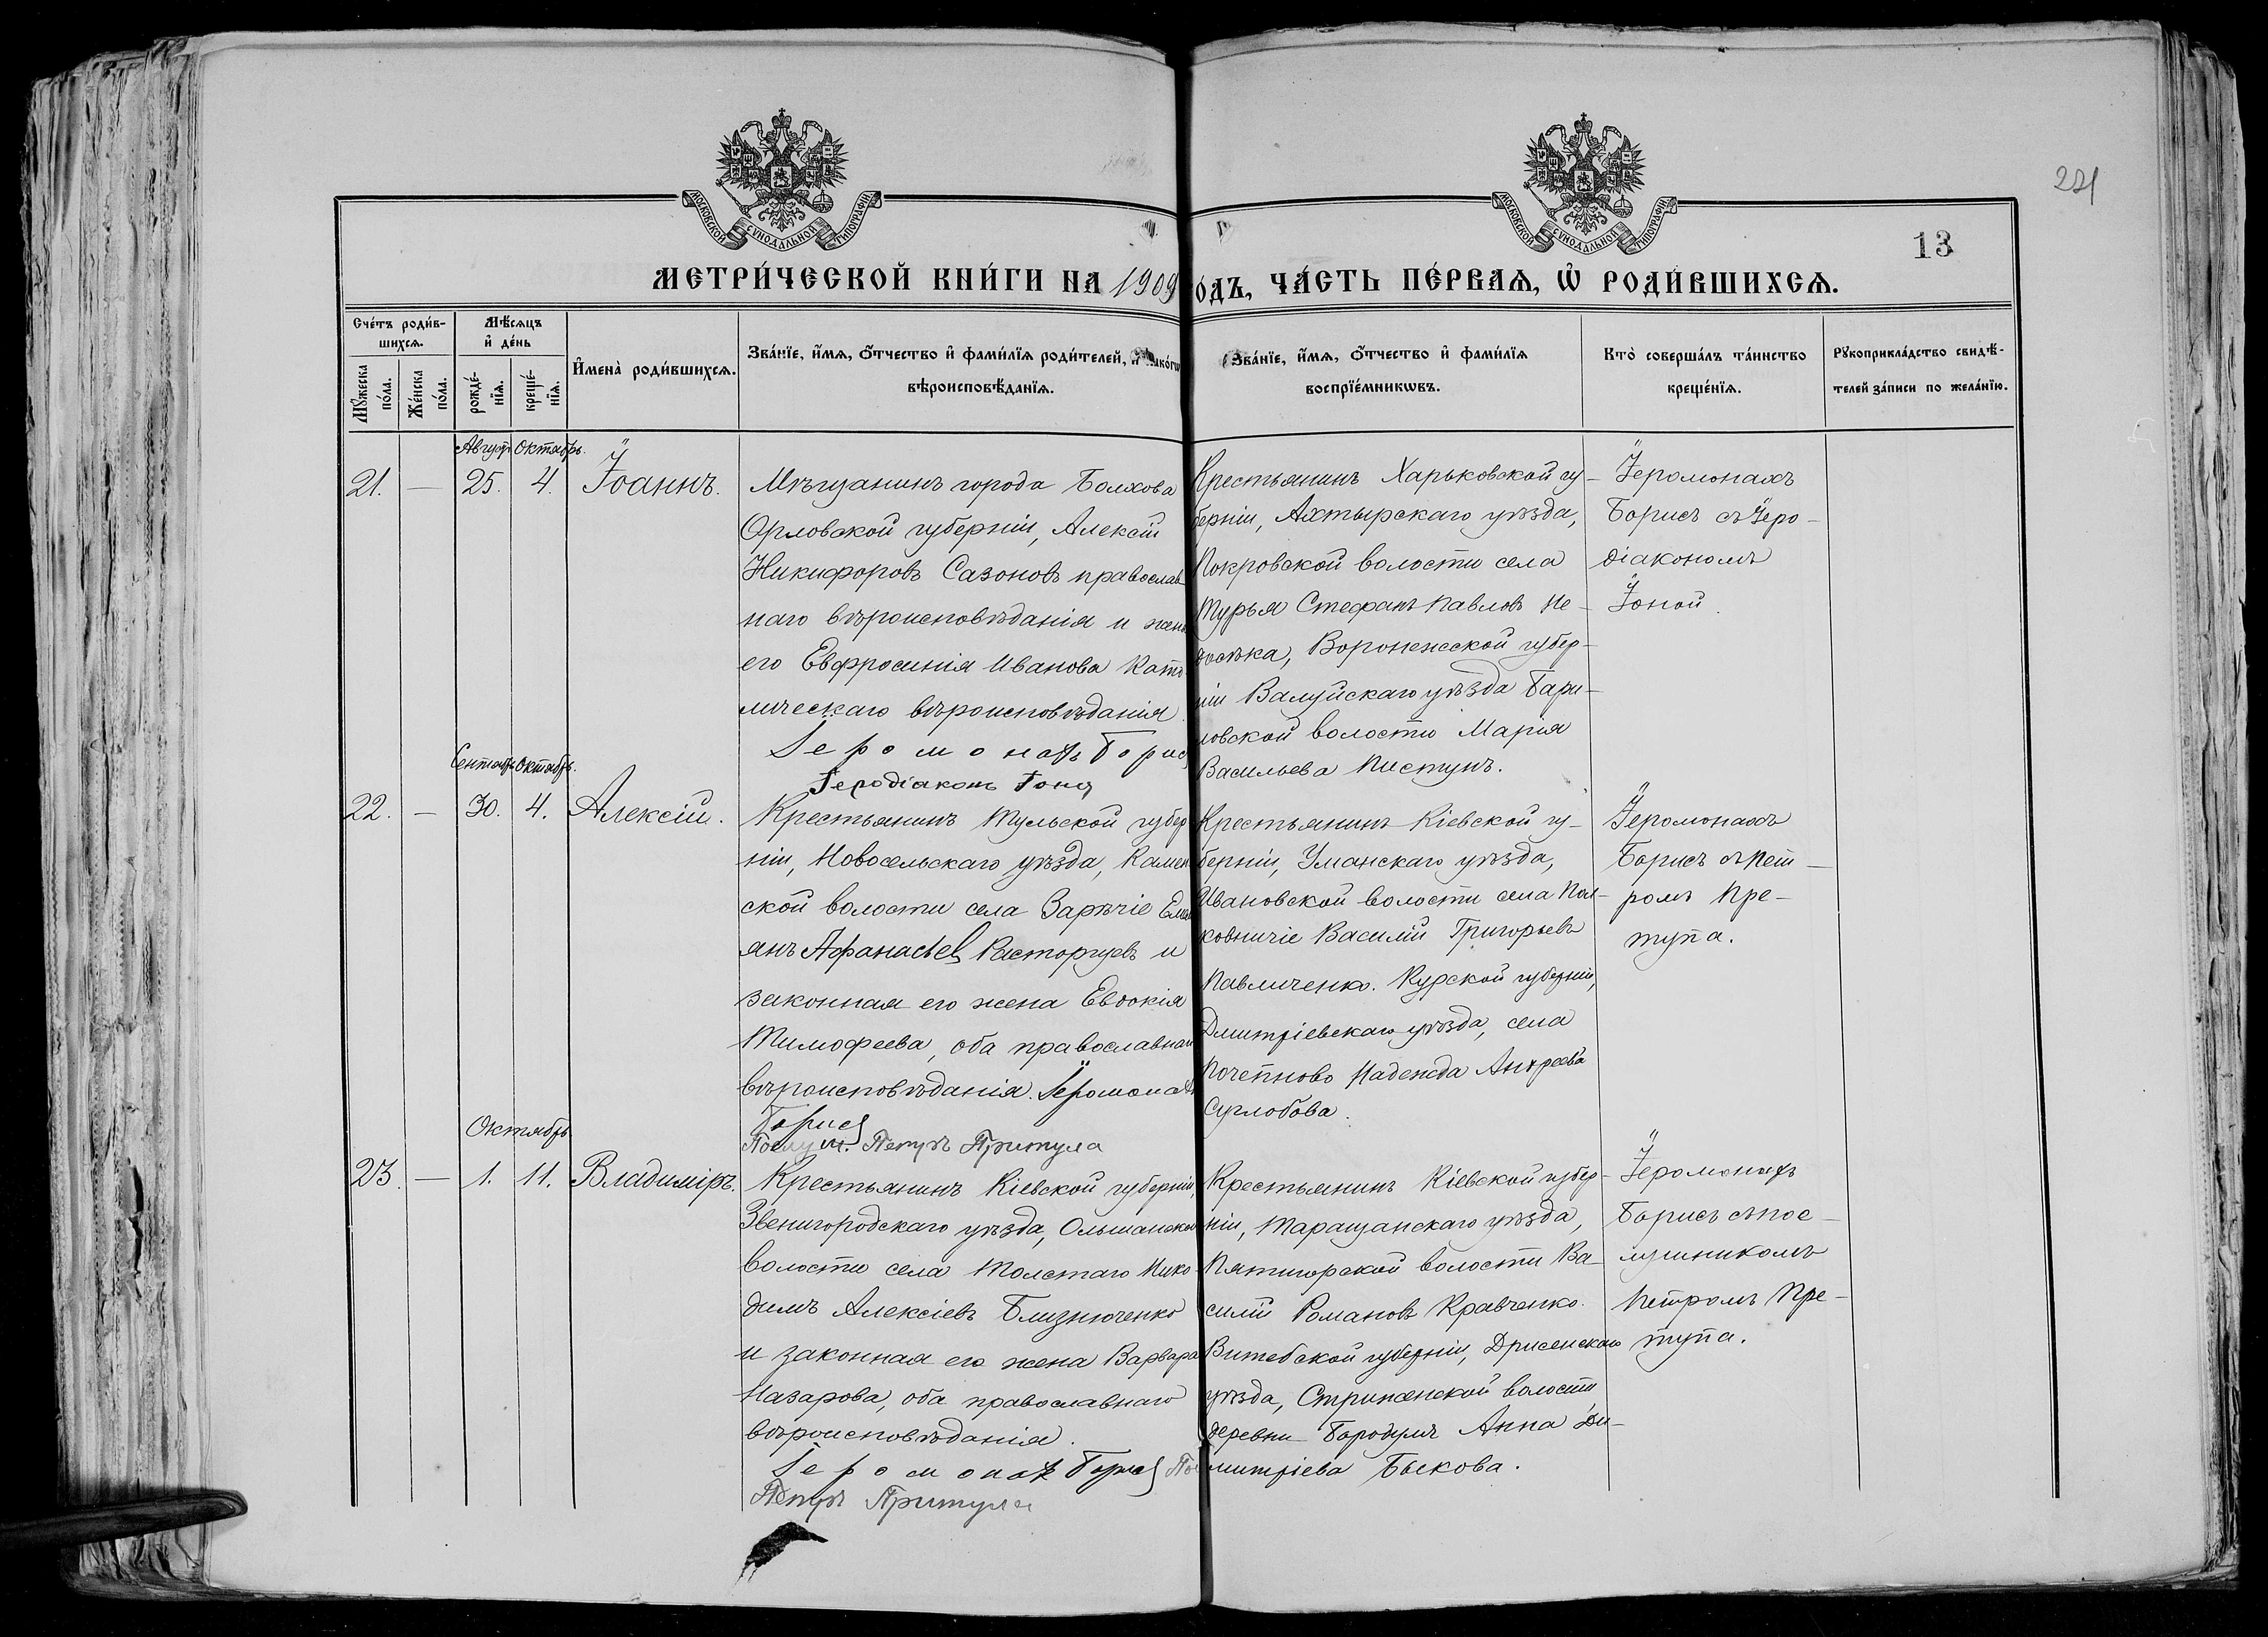 221
13
МОСКОВСКОЙ СУНОДАЛЬНОЙ ТИПОГРАФІИ
МОСКОВСКОЙ СУНОДАЛЬНОЙ ТИПОГРАФІИ
МЕТРИ́ЧЕСКОЙ КНИ́ГИ НА 1909 ОДЪ, ЧА́СТЬ ПЕ́РВАѦ, Ѡ҆ РОДИ́ВШИХСѦ.
Сче́тъ роди́в-
шихсѧ.
Мꙋ́жеска по́ла.
Же́нска по́ла.
Мѣ́сѧцъ
и҆ де́нь
рожде́-
нїѧ.
креще́-
нїѧ.
И҆мена̀ роди́вшихсѧ.
Зва́нїе, и҆́мѧ, ѻ҆́тчество и҆ фами́лїѧ роди́телей, и҆ како́гѡ
вѣроисповѣ́данїѧ.
Зва́нїе, и҆́мѧ, ѻ҆́тчество и҆ фами́лїѧ
воспрїе́мникѡвъ.
Кто̀ соверша́лъ та́инство
креще́нїѧ.
Рꙋкоприкла́дство свидѣ́-
телей за́писи по жела́нїю.
Август Октябрь.
21. — 25. 4. Іоаннъ.
Мѣщанинъ города Болхова
Орловской губерніи, Алексій
Никифоровъ Сазоновъ православ-
наго вѣроисповѣданія и жена
его Евфросинія Иванова като
лическаго вѣроисповѣданія.
Іеромонахъ Борис
Іеродіаконъ Іона
Крестьянинъ Харьковской гу-
берніи, Ахтырскаго уѣзда,
Покровской волости села
Турья Стефанъ Павловъ Не-
досѣка, Воронежской губер-
ніи Валуйскаго уѣзда Бари-
ловской волости Марія
Васильева Пистунъ.
Іеромонахъ
Борисъ съ Іеро-
діакономъ
Іоной.
Сентябрь Октябрь.
22. — 30. 4. Алексій.
Крестьянинъ Тульской губер
ніи, Новосельскаго уѣзда, Камен
ской волости села Зарѣчіе Емел
янъ Афанасьев Расторгуевъ и
законная его жена Евдокія
Тимофеева, оба православнаго
вѣроисповѣданія. Іеромонахъ
Борис
Послуш. Петръ Притула
Крестьянинъ Кіевской гу-
берніи, Уманскаго уѣзда,
Ивановской волости села Пол-
ковничіе Василій Григорьевъ
Павличенко. Курской губерніи,
Дмитріевскаго уѣзда, села
Почепново Надежда Андреева
Суглобова.
Іеромонахъ
Борисъ съ Пет-
ромъ Пре-
тупа.
Октябрь
23. — 1. 11. Владиміръ.
Крестьянинъ Кіевской губерніи,
Звенигородскаго уѣзда, Ольшанской
волости села Толстаго Нико-
димъ Алексіевъ Близнюченко
и законная его жена Варвара
Назарова, оба православнаго
вѣроисповѣданія.
Іеромонахъ Борис По
Петръ Притула
Крестьянинъ Кіевской губер-
ніи, Таращанскаго уѣзда,
Пятигорской волости Ва-
силій Романовъ Кравченко.
Витебской губерніи, Дрисенскаго
уѣзда, Стрижинской волости
деревни Бородулъ Анна Ди-
митріева Быкова.
Іеромонахъ
Борисъ съ пос-
лушникомъ
Петромъ Пре-
тупа.